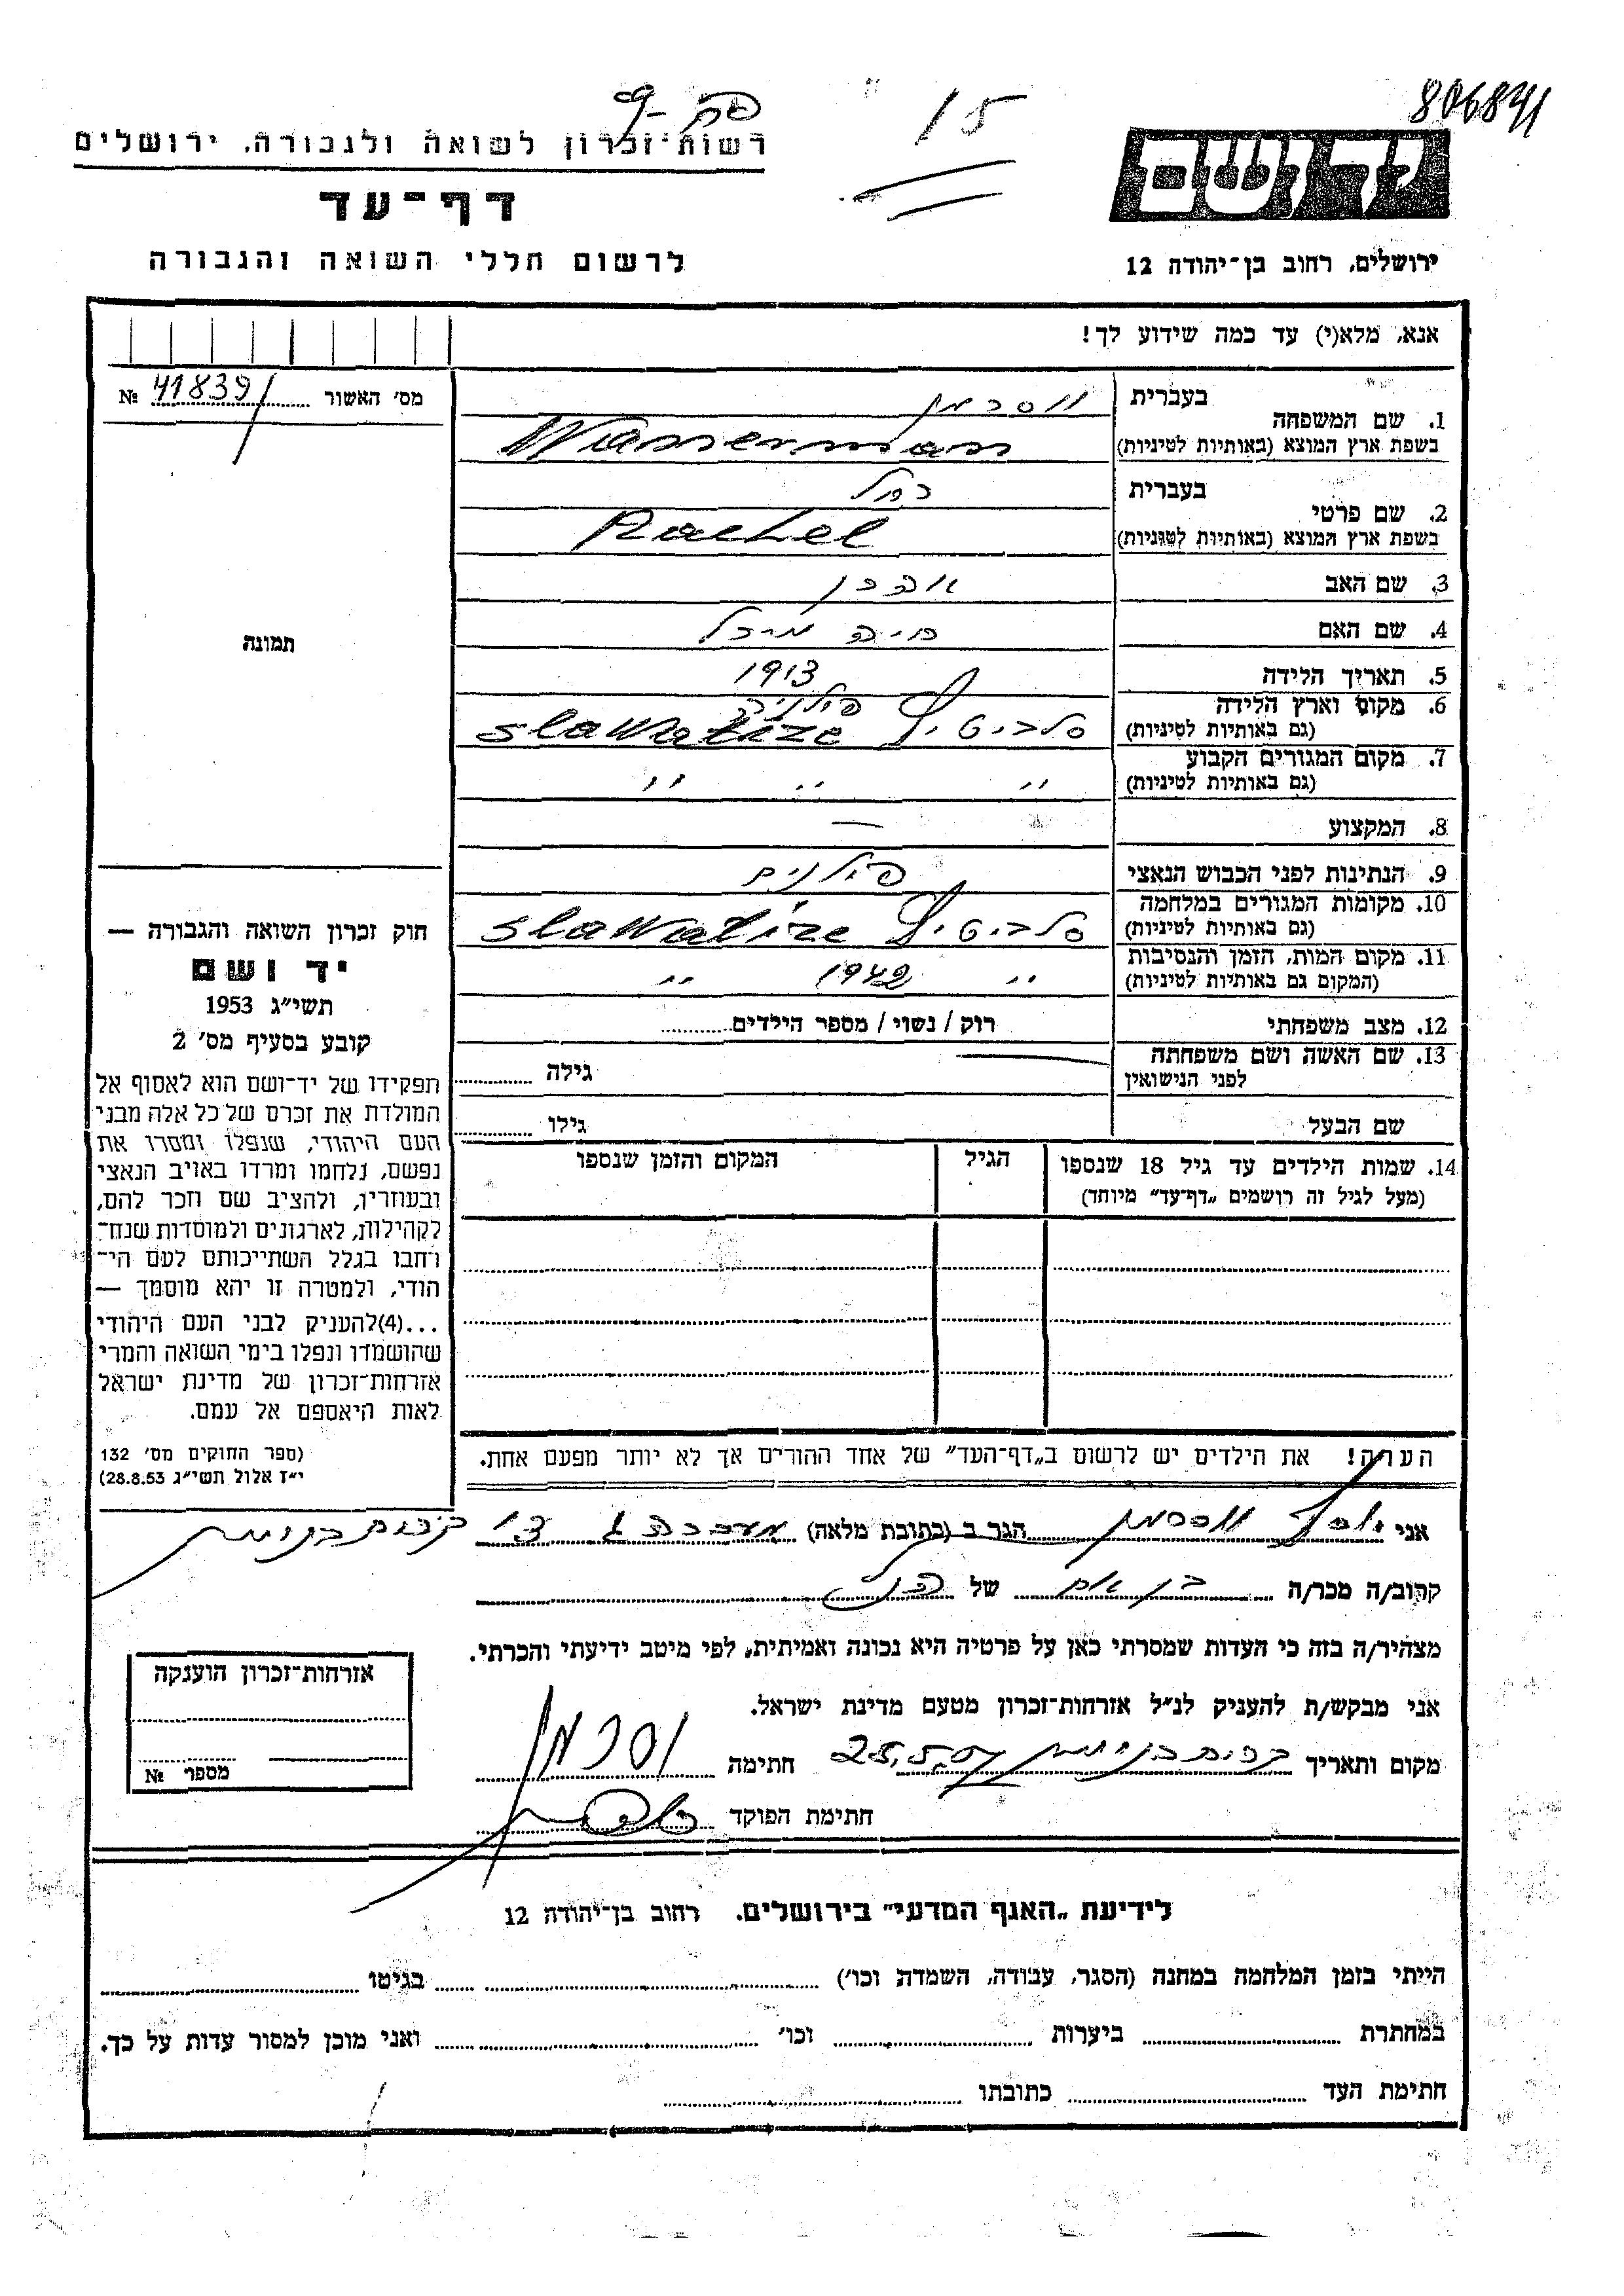 806841
15
רשות־זכרון לשואה ולגבורה, ירושלים
יד ושם
דף־עד
ירושלים, רחוב בן־יהודה 12
לרשום חללי השואה והגבורה
אנא, מלא(י) עד כמה שידוע לך!
מס' האשור № 41839
1. שם המשפחה בעברית ווסרמן
בשפת ארץ המוצא (באותיות לטיניות) Wasserman
2. שם פרטי בעברית רחל
בשפת ארץ המוצא (באותיות לטיניות) Rachel
3. שם האב אהרן
4. שם האם חיה מירל
תמונה
5. תאריך הלידה 1913
6. מקום וארץ הלידה פולניה
(גם באותיות לטיניות) סלביטיץ slawatize
7. מקום המגורים הקבוע
(גם באותיות לטיניות) " " "
8. המקצוע —
9. הנתינות לפני הכבוש הנאצי פולנית
10. מקומות המגורים במלחמה
(גם באותיות לטיניות) סלביטיץ slawatize
11. מקום המות, הזמן והנסיבות
(המקום גם באותיות לטיניות) " 1942 "
12. מצב משפחתי רוק / נשוי / מספר הילדים
13. שם האשה ושם משפחתה
לפני הנישואין גילה
שם הבעל גילו
14. שמות הילדים עד גיל 18 שנספו
(מעל לגיל זה רושמים „דף־עד" מיוחד)
הגיל
המקום והזמן שנספו
חוק זכרון השואה והגבורה —
יד ושם
תשי"ג 1953
קובע בסעיף מס' 2
תפקידו של יד־ושם הוא לאסוף אל
המולדת את זכרם של כל אלה מבני
העם היהודי, שנפלו ומסרו את
נפשם, נלחמו ומרדו באויב הנאצי
ובעוזריו, ולהציב שם וזכר להם,
לקהילות, לארגונים ולמוסדות שנח־
רחבו בגלל השתייכותם לעם הי־
הודי, ולמטרה זו יהא מוסמך —
...(4)להעניק לבני העם היהודי
שהושמדו ונפלו בימי השואה והמרי
אזרחות־זכרון של מדינת ישראל
לאות היאספם אל עמם.
(ספר החוקים מס' 132
י"ז אלול תשי"ג 28.8.53)
הערה! את הילדים יש לרשום ב„דף־העד" של אחד ההורים אך לא יותר מפעם אחת.
אני יוסף ווסרמן הגר ב (כתובת מלאה)
קרוב/ה מכר/ה בן אח של הנ"ל
מצהיר/ה בזה כי העדות שמסרתי כאן על פרטיה היא נכונה ואמיתית, לפי מיטב ידיעתי והכרתי.
אני מבקש/ת להעניק לנ"ל אזרחות־זכרון מטעם מדינת ישראל.
מקום ותאריך חתימה וסרמן
חתימת הפוקד
אזרחות־זכרון הוענקה
מספר №
לידיעת „האגף המדעי" בירושלים. רחוב בן־יהודה 12
הייתי בזמן המלחמה במחנה (הסגר, עבודה, השמדה וכו') בגיטו
במחתרת ביערות וכו' ואני מוכן למסור עדות על כך.
חתימת העד כתובתו